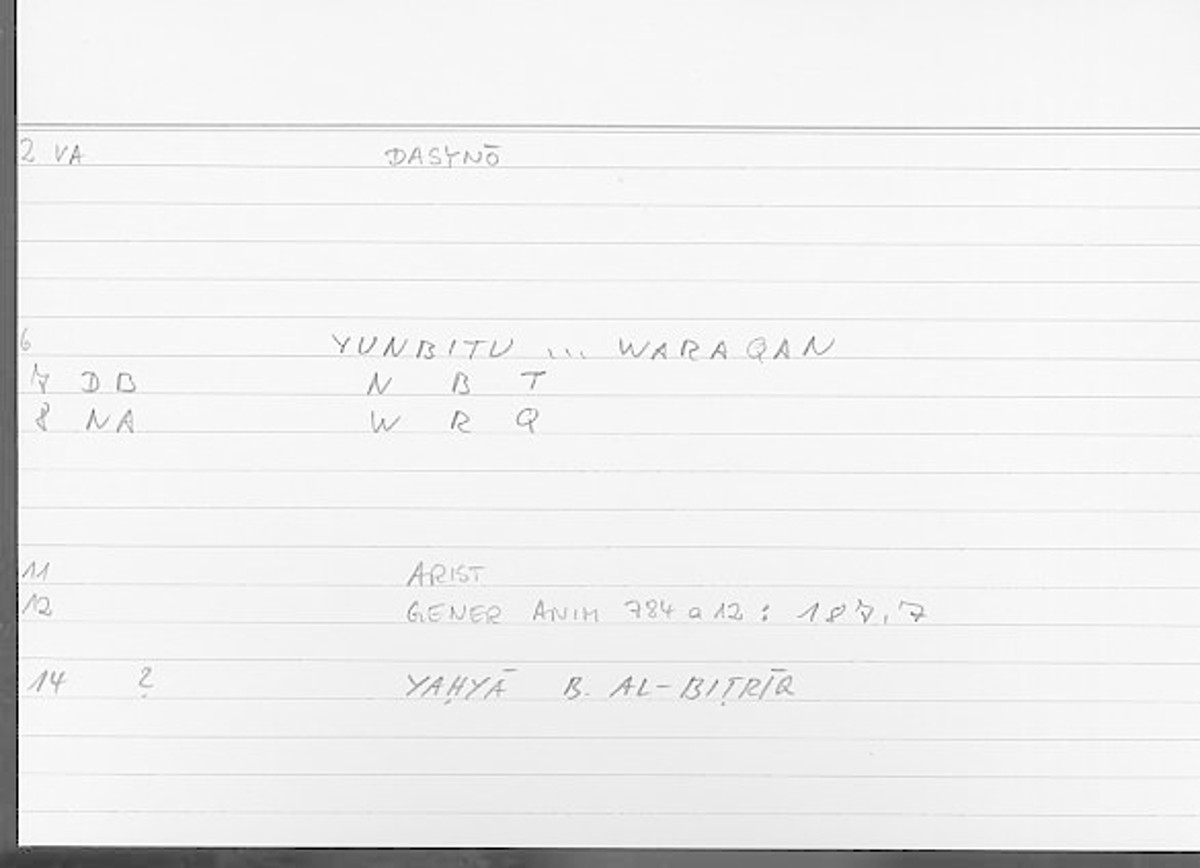 2 VA DASYNŌ
6 YUNBITU ... WARAQAN
7 DB N B T
8 NA W R Q
11 ARIST
12 GENER ANIM 784 a 12 : 187,7
14 ? YAḤYĀ B. AL-BIṬRĪQ